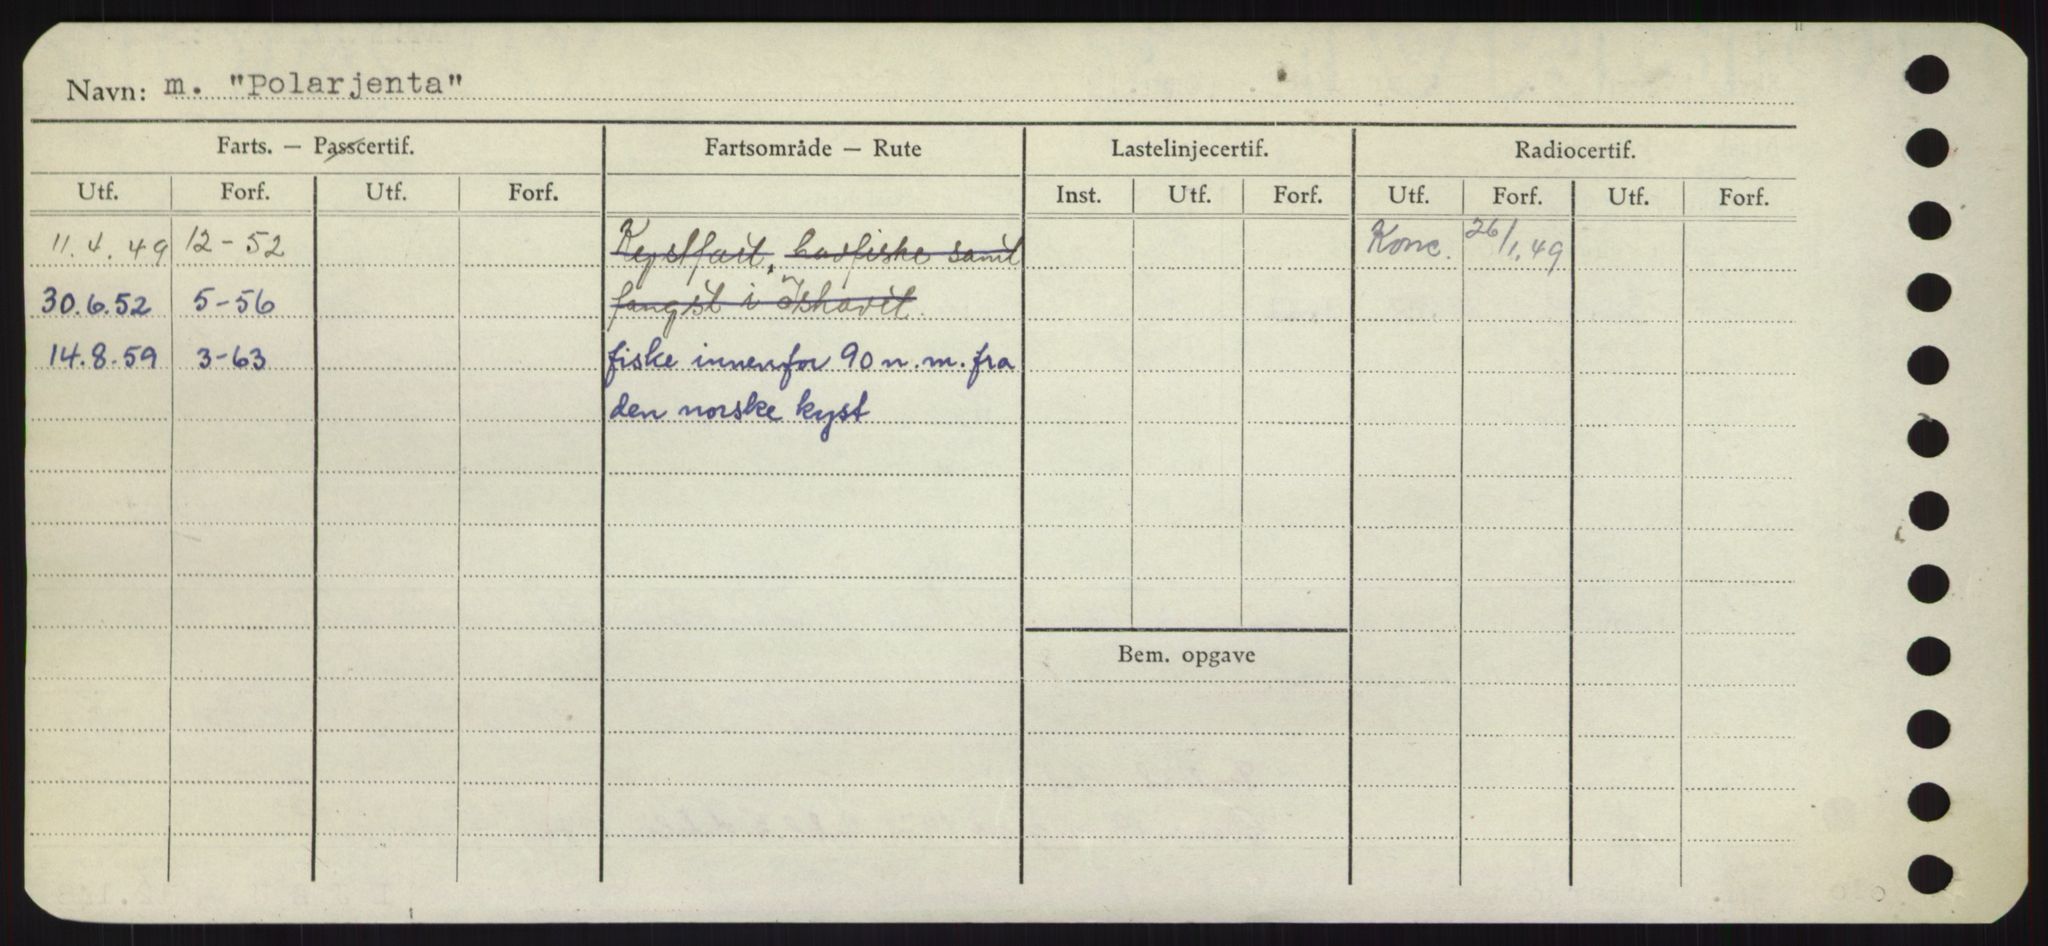 Navn: m. "Polarjenta"
Farts. — Passcertif. Fartsområde — Rute Lastelinjecertif. Radiocertif.
Utf. Forf. Utf. Forf. Inst. Utf. Forf. Utf. Forf. Utf. Forf.
11.4.49 12-52 Kystfart, havfiske samt Konc. 26/1.49
30.6.52 5-56 fangst i Ishavet.
14.8.59 3-63 fiske innenfor 90 n.m. fra
den norske kyst
Bem. opgave